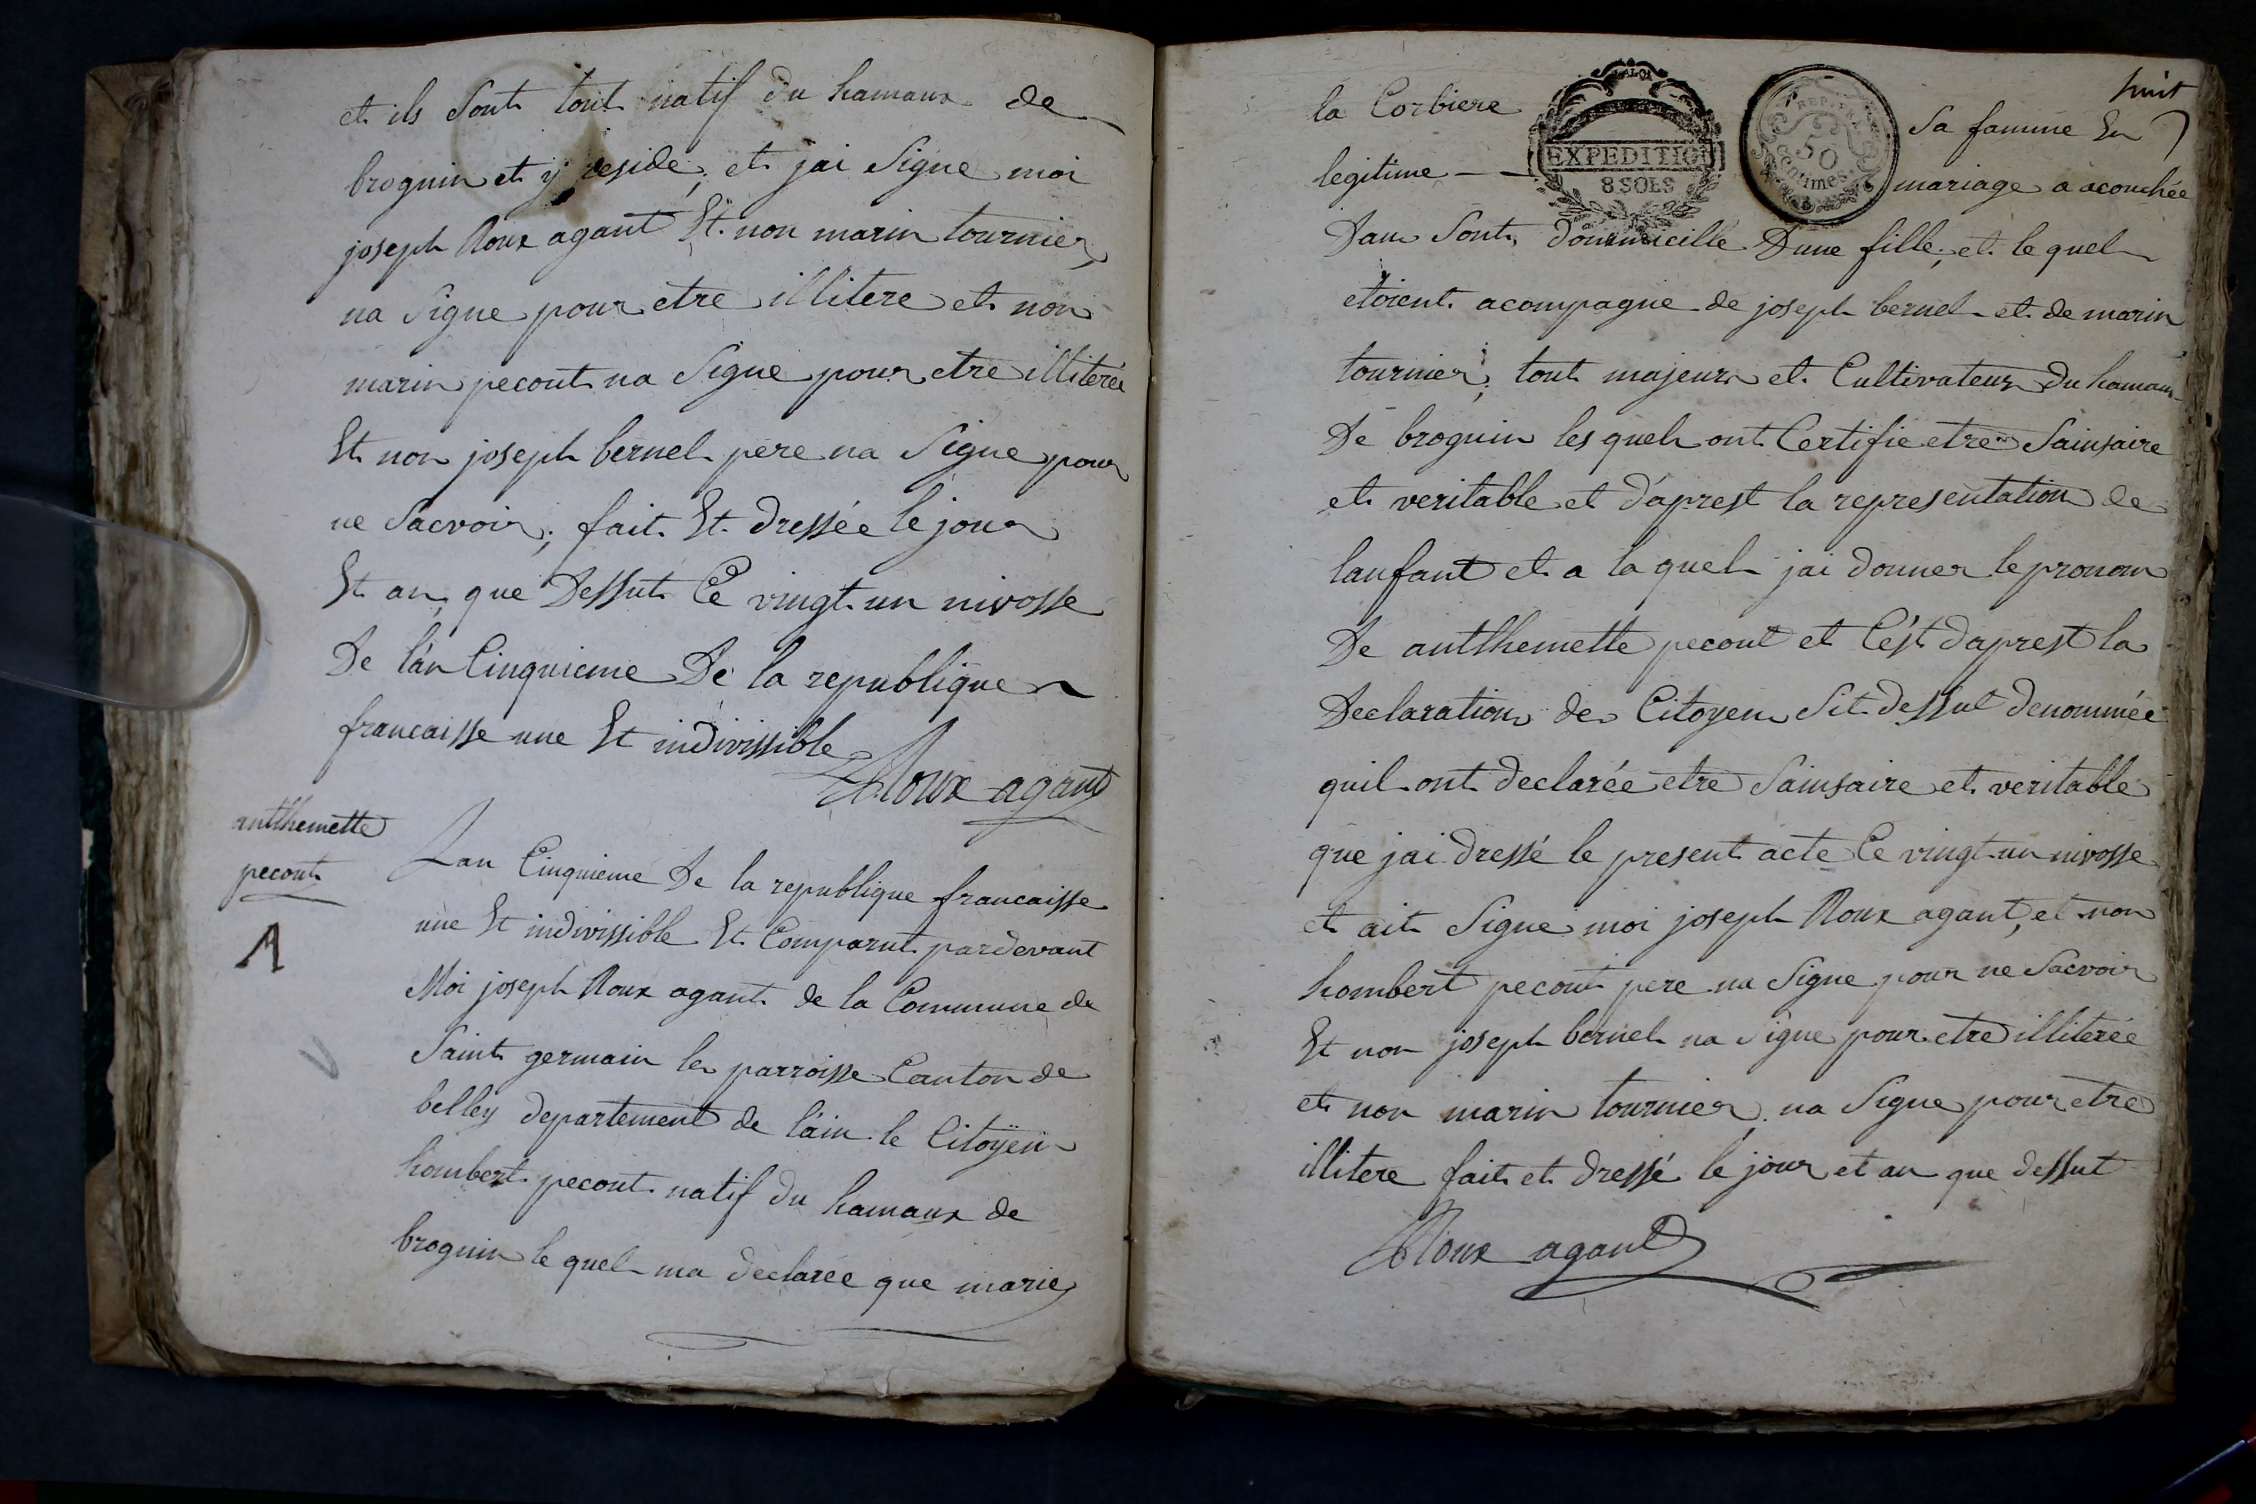 et ils sont tout natif du hamaux de
broguin et y reside, et jai signe moi
joseph Roux agant Et non marin tournier
na signe pour etre illitere et non
marin pecout na signe pour etre illiterée
Et non joseph bernel pere na signe pour
ne sacvoir, fait Et dressée le jour
Et an que dessut Ce vingt un nivosse
De l'an Cinquieme De la republique
francaisse une Et indivissible
Roux agant
antlhemette
pecout
Lan Cinquieme De la republique francaisse
une Et indivissible Et Comparut pardevant
Moi joseph Roux agant de la Commune de
Saint germain les parroisse Canton de
belley departement de l'ain le Citoyen
hombert pecout natif du hamaux de
broguin le quel ma declarée que marie
huit
la Corbiere sa famme En
EXPEDITION
8 SOLS
REP. FRA.
50
Centimes
legitime -- mariage a acouchée
Dans sont dommicille Dune fille, et le quel
etoient acompagne de joseph bernel et de marin
tournier, tout majeur et Cultivateur Du hamaux
De broguin les quel ont Certifie etre sainsaire
et veritable et d'aprest la representation de
lanfant et a la quel jai donner le pronom
De antlhemette pecout et C'est daprest la
Declaration des Citoyen sit dessut denommée
quil ont declarée etre sainsaire et veritable
que jai dressé le present acte Ce vingt un nivosse
et ait signe moi joseph Roux agant, et non
hombert pecout pere na signe pour ne sacvoir
Et non joseph bernel na signe pour etre illiterée
et non marin tournier na signe pour etre
illitere fait et dressé le jour et an que dessut
Roux agant